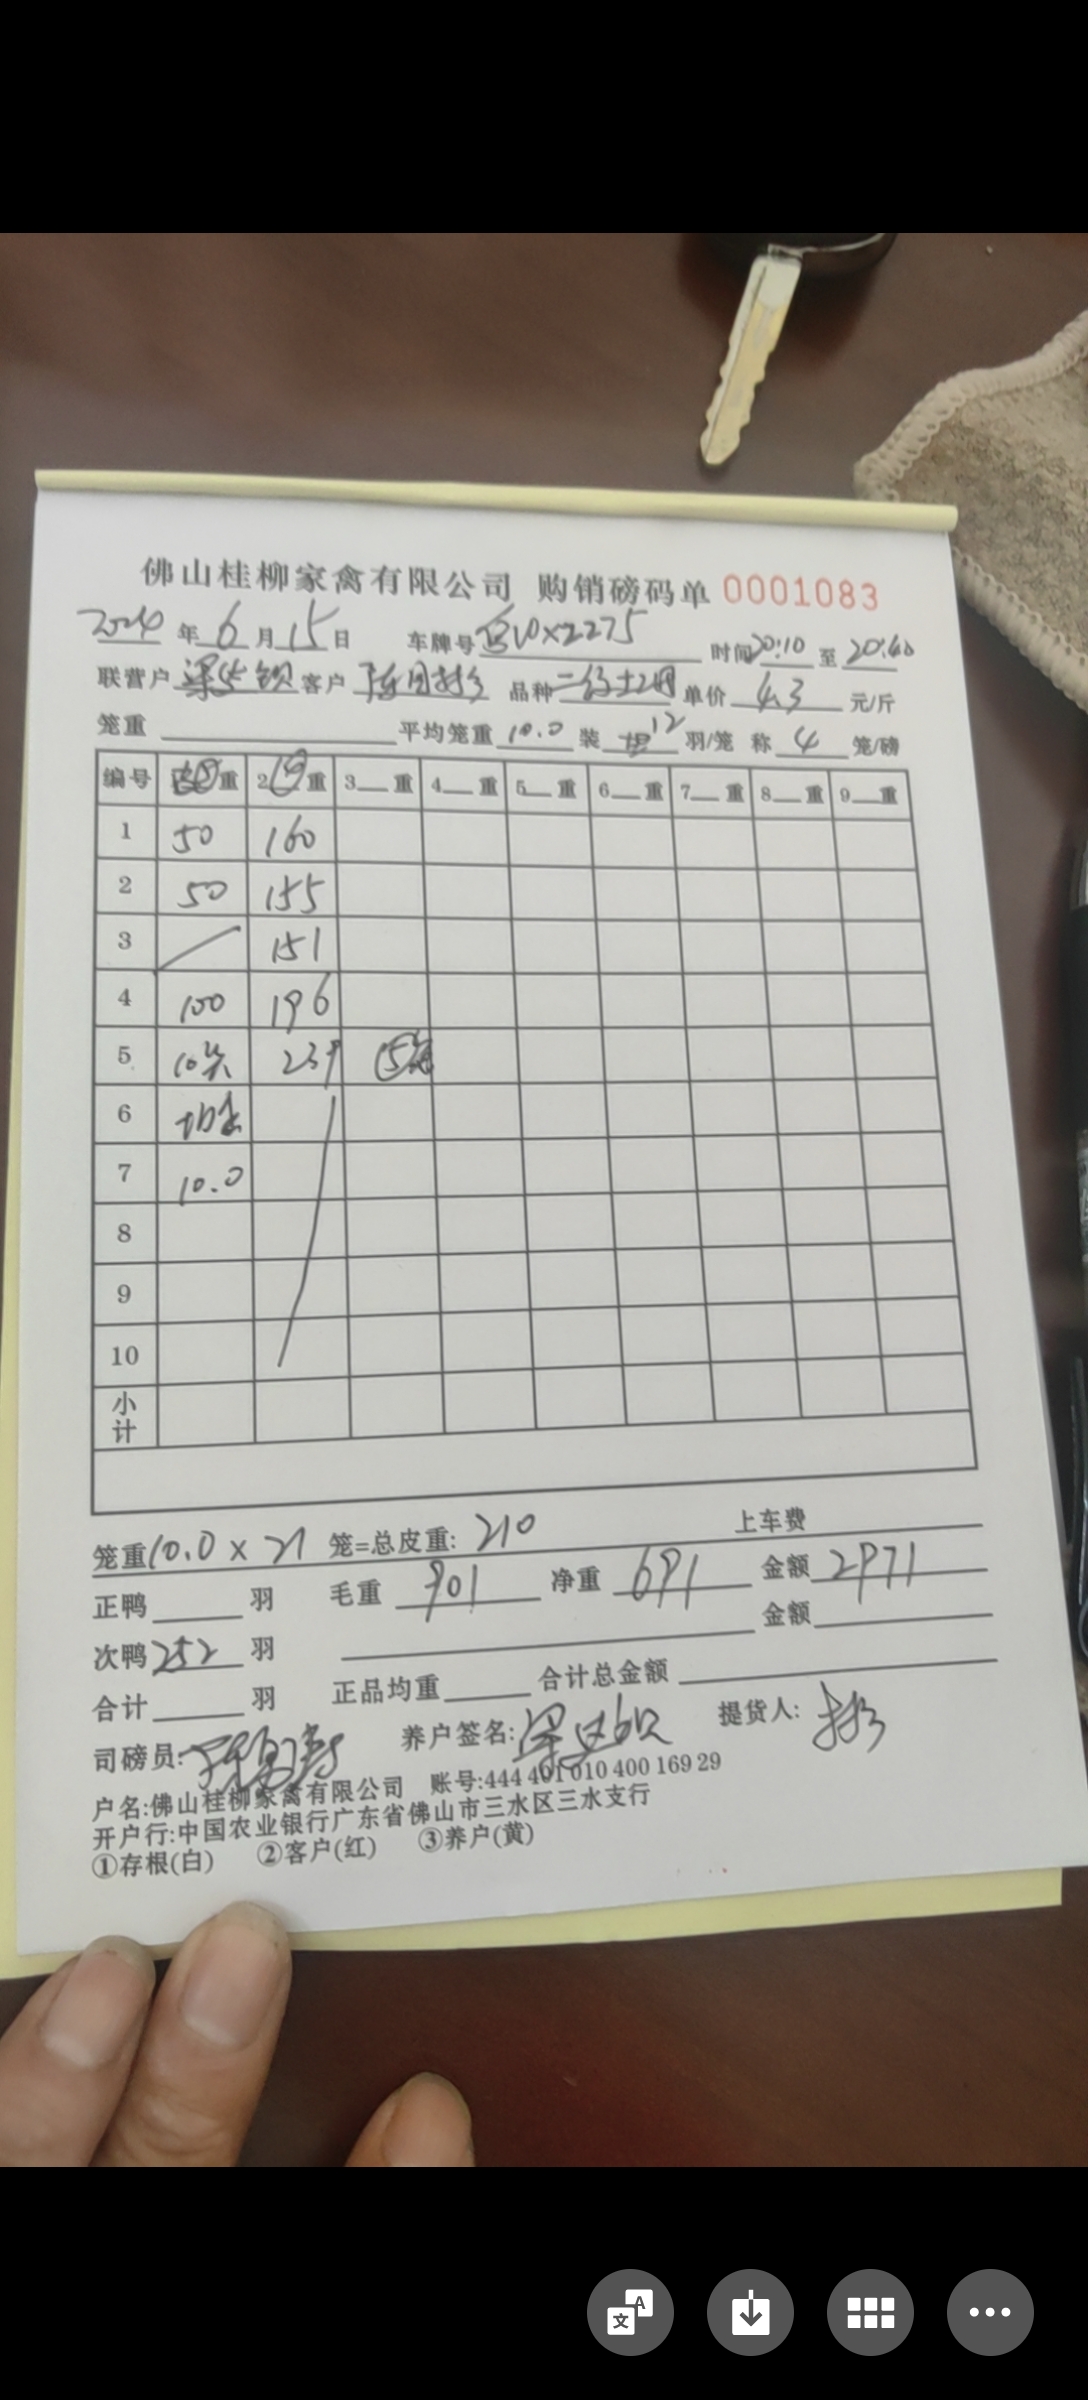 佛山桂柳家禽有限公司 购销磅码单 0001083
2024 年 6 月 15 日 车牌号 V0X2275 时间 20:10 至 20:40
联营户 客户 品种 单价 4.3 元/斤
笼重 平均笼重 10.0 装 12 羽/笼 称 4 笼/磅
编号 重 2 重 3 重 4 重 5 重 6 重 7 重 8 重 9 重
1 50 160
2 50 155
3 151
4 100 196
5 10 239
6
7 10.0
8
9
10
小计
上车费
笼重 10.0 x 21 笼=总皮重: 210
正鸭 羽 毛重 901 净重 691 金额 2971
次鸭 252 羽 金额
合计 羽 正品均重 合计总金额
司磅员: 养户签名: 提货人:
户名:佛山桂柳家禽有限公司 账号:444 401 010 400 169 29
开户行:中国农业银行广东省佛山市三水区三水支行
①存根(白) ②客户(红) ③养户(黄)